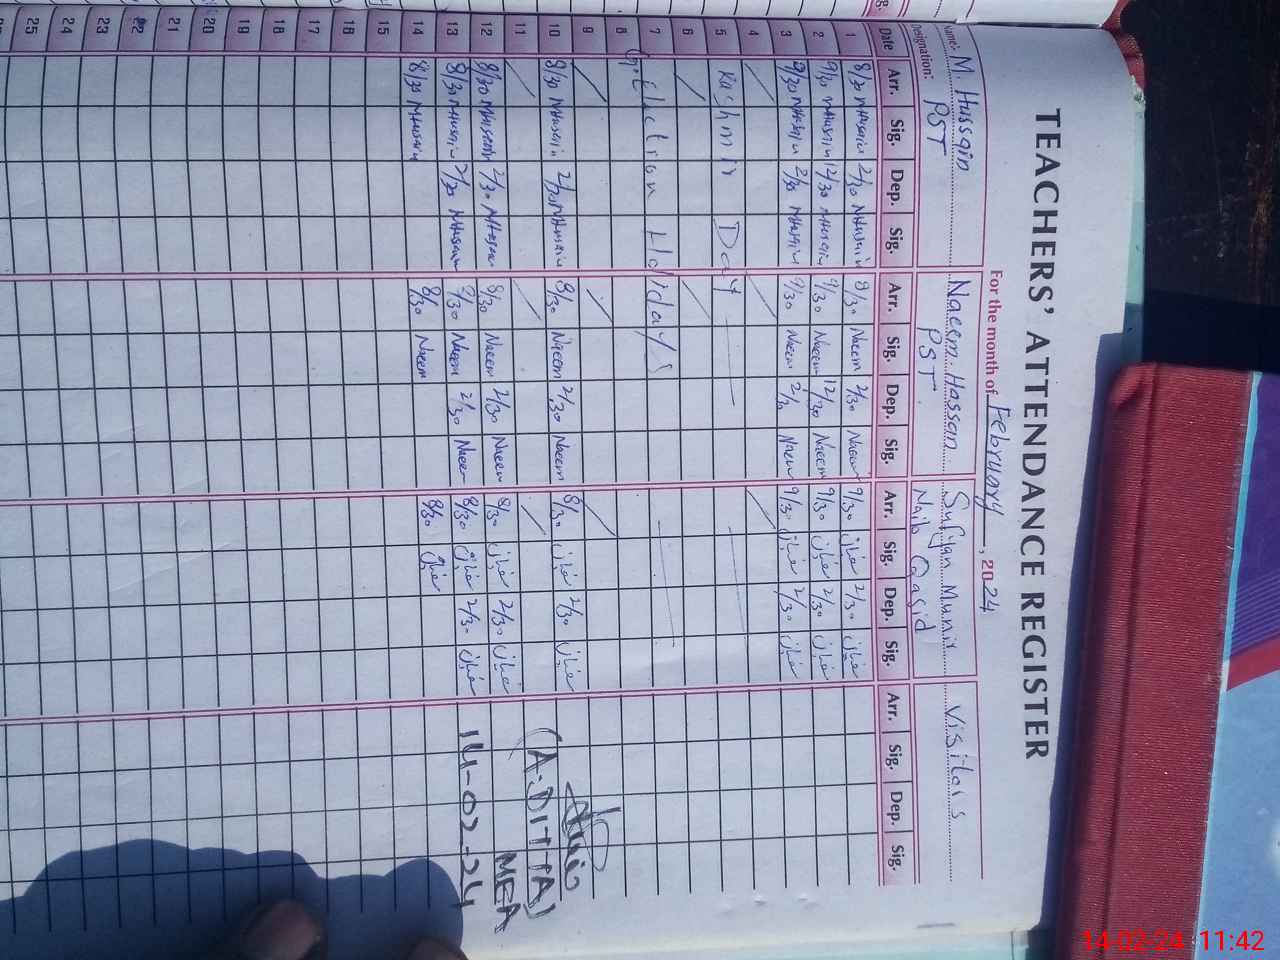 TEACHERS' ATTENDANCE REGISTER
For the month of February, 2024
Name: M. Hussain Naeem Hassan Sufyan Munir Visitors
Designation: PST PST. Naib Qasid
Date Arr. Sig. Dep. Sig. Arr. Sig. Dep. Sig. Arr. Sig. Dep. Sig. Arr. Sig. Dep. Sig.
1 8/30 MHusain 2/30 MHusain 8/30 Naeem 2/30 Naeem 9/30 2/30
2 9/30 MHusain 12/30 MHusain 9/30 Naeem 12/30 Naeem 9/30 2/30
3 9/30 MHusain 2/30 MHusain 9/30 Naeem 2/30 Naeem 9/30 2/30
4
5 Kashmir Day
6
7 G. Election Holidays
8
9
10 8/30 MHusain 2/30 MHusain 8/30 Naeem 2/30 Naeem 8/30 2/30
11
12 8/30 MHusain 2/30 MHusain 8/30 Naeem 2/30 Naeem 8/30 2/30
13 8/30 MHusain 2/30 MHusain 8/30 Naeem 2/30 Naeem 8/30 2/30
14 8/30 MHusain 8/30 Naeem 8/30
(A. DITTA)
MEA
14-02-24
15
16
17
18
19
20
21
22
23
24
25
14-02-24 11:42